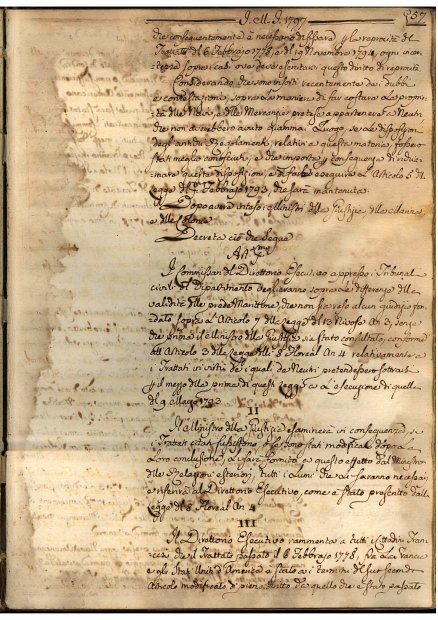 1797
che consequentemente è necessario di sapere che la reprocità del
Trattato del 6 Febbrajo 1778, e del 19 Novembre 1794, ogni incer-
tezza sopra i casi ove deve esercitarsi questo diritto di
Considerando che sono insorti recentemente dei dubbi
e contestazioni sopra la maniera di far costare la proprie-
tà delle Navi, e delle Mercanzie pretese appartenere a Neutri
che non ne avuto Luogo, se le disposizioni
degli antichi Regolamenti relativi a questa materia, fossero
stati meglio conosciuti, e che importa per conseguenza di richia-
mare queste disposizioni, e di fare eseguire l'Articolo 5 della
Legge del Febbrajo 1793, che le ha mantenute.
Dopo avere inteso i Ministri della Giustizia della Marina
e delle Colonie
Decreta ciò che Segue
Art. Pmo
I Commissari del Direttorio Esecutivo appresso i Tribunali
Civili del Dipartimento veglieranno sopra le differenze della
validità delle prede Marittime, che non sia reso alcun giudizio fon-
dato sopra l'Articolo 7 della Legge del 13 Nivoso An 3, senza
che prima il Ministro della Giustizia sia stato consultato, conforme
all'Articolo 3 della Legge delli 8 Floreal An 4 relativamente a
i Trattati in virtù de i quali de Neutri pretendessero sottrarsi
per il mezzo della prima di queste Leggi a l'esecuzione di quella
del 9 Maggio 1793
II
Il Ministro della Giustizia esaminerà in conseguenza se
i Trattati citati sussistono, o se sono stati modificati dopo la
loro conclusione; Li sarà fornito a questo effetto dal Ministro
delle Relazioni esteriori tutti i Lumi che li saranno necessari
e riferirà al Direttorio Esecutivo, come è stato prescritto dalla
Legge de 8 Floreal An 4
III
Il Direttorio Esecutivo rammenta a tutti i Cittadini Fran-
cesi che il Trattato passato il 6 Febbrajo 1778, fra La Francia
e gli Stati Uniti d'America è stato a i termini del suo secondo
Articolo modificato di pieno diritto da quello che è stato passato